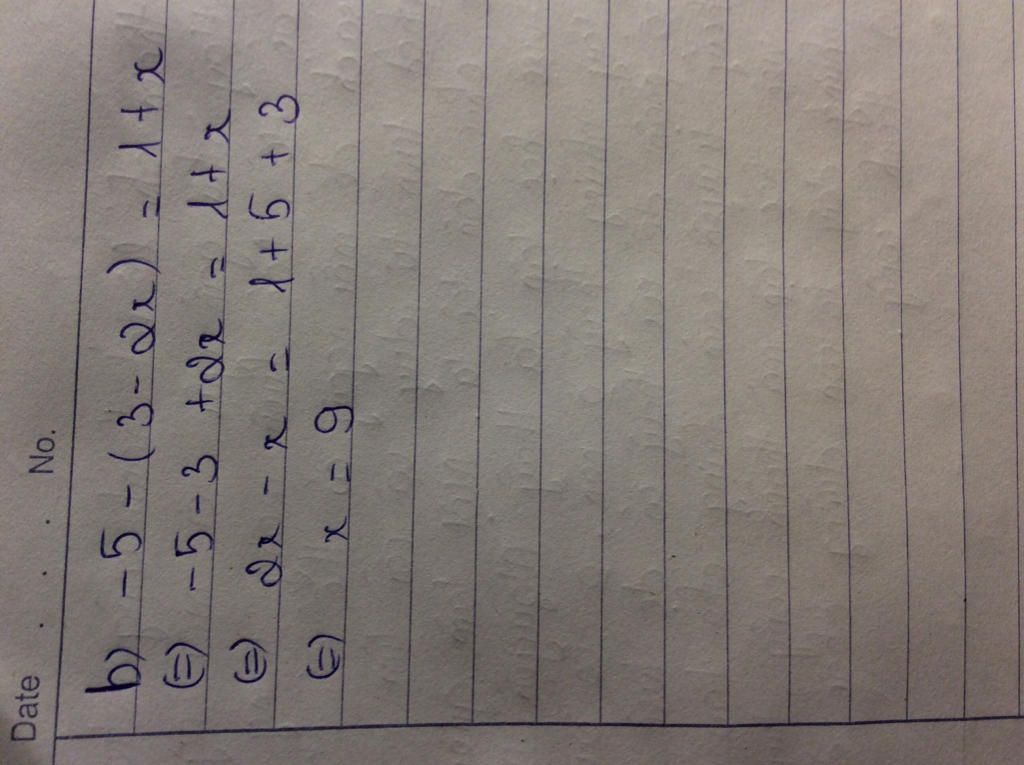 Date . . . No.
b) -5 - (3 - 2x) = 1 + x
(=) -5 - 3 + 2x = 1 + x
(=) 2x - x = 1 + 5 + 3
(=) x = 9